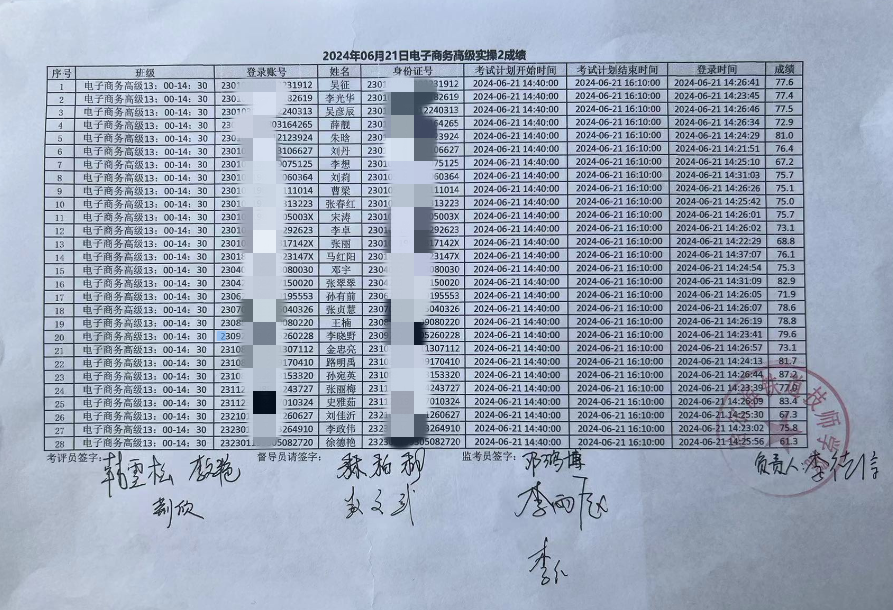 2024年06月21日电子商务高级实操2成绩
序号 班级 登录账号 姓名 身份证号 考试计划开始时间 考试计划结束时间 登录时间 成绩
1 电子商务高级13：00-14：30 2301 231912 吴征 2301 231912 2024-06-21 14:40:00 2024-06-21 16:10:00 2024-06-21 14:26:41 77.6
2 电子商务高级13：00-14：30 2301 32619 李光华 2301 282619 2024-06-21 14:40:00 2024-06-21 16:10:00 2024-06-21 14:23:45 77.4
3 电子商务高级13：00-14：30 23010 240313 吴彦辰 2301 2240313 2024-06-21 14:40:00 2024-06-21 16:10:00 2024-06-21 14:26:46 77.5
4 电子商务高级13：00-14：30 2301 03164265 薛靓 2301 64265 2024-06-21 14:40:00 2024-06-21 16:10:00 2024-06-21 14:26:34 72.9
5 电子商务高级13：00-14：30 230 2123924 朱晗 2301 23924 2024-06-21 14:40:00 2024-06-21 16:10:00 2024-06-21 14:24:29 81.0
6 电子商务高级13：00-14：30 2301 3106627 刘丹 2301 06627 2024-06-21 14:40:00 2024-06-21 16:10:00 2024-06-21 14:21:51 76.4
7 电子商务高级13：00-14：30 2301 075125 李想 2301 75125 2024-06-21 14:40:00 2024-06-21 16:10:00 2024-06-21 14:25:10 67.2
8 电子商务高级13：00-14：30 2301 060364 刘莉 2301 60364 2024-06-21 14:40:00 2024-06-21 16:10:00 2024-06-21 14:31:03 75.7
9 电子商务高级13：00-14：30 2301 111014 曹梁 2301 11014 2024-06-21 14:40:00 2024-06-21 16:10:00 2024-06-21 14:26:26 75.1
10 电子商务高级13：00-14：30 2301 313223 张春红 2301 13223 2024-06-21 14:40:00 2024-06-21 16:10:00 2024-06-21 14:25:42 75.0
11 电子商务高级13：00-14：30 2301 05003X 宋涛 2301 05003X 2024-06-21 14:40:00 2024-06-21 16:10:00 2024-06-21 14:26:01 75.7
12 电子商务高级13：00-14：30 2301 292623 李卓 2301 292623 2024-06-21 14:40:00 2024-06-21 16:10:00 2024-06-21 14:26:02 73.1
13 电子商务高级13：00-14：30 2301 17142X 张丽 2301 17142X 2024-06-21 14:40:00 2024-06-21 16:10:00 2024-06-21 14:22:29 68.8
14 电子商务高级13：00-14：30 2301 23147X 马红阳 2301 23147X 2024-06-21 14:40:00 2024-06-21 16:10:00 2024-06-21 14:37:07 76.1
15 电子商务高级13：00-14：30 2304 080030 邓宇 2304 080030 2024-06-21 14:40:00 2024-06-21 16:10:00 2024-06-21 14:24:54 75.3
16 电子商务高级13：00-14：30 2304 150020 张翠翠 2304 150020 2024-06-21 14:40:00 2024-06-21 16:10:00 2024-06-21 14:31:09 82.9
17 电子商务高级13：00-14：30 2306 195553 孙有前 2306 195553 2024-06-21 14:40:00 2024-06-21 16:10:00 2024-06-21 14:26:05 71.9
18 电子商务高级13：00-14：30 2307 040326 张贞慧 2307 040326 2024-06-21 14:40:00 2024-06-21 16:10:00 2024-06-21 14:26:07 78.6
19 电子商务高级13：00-14：30 2308 080220 王楠 2308 9080220 2024-06-21 14:40:00 2024-06-21 16:10:00 2024-06-21 14:26:19 78.8
20 电子商务高级13：00-14：30 2309 260228 李晓野 2309 5260228 2024-06-21 14:40:00 2024-06-21 16:10:00 2024-06-21 14:23:41 79.6
21 电子商务高级13：00-14：30 2310 307112 金忠亮 2310 1307112 2024-06-21 14:40:00 2024-06-21 16:10:00 2024-06-21 14:26:57 73.1
22 电子商务高级13：00-14：30 2310 170410 路明禹 2310 9170410 2024-06-21 14:40:00 2024-06-21 16:10:00 2024-06-21 14:24:13 81.7
23 电子商务高级13：00-14：30 2310 153320 孙宛英 2310 153320 2024-06-21 14:40:00 2024-06-21 16:10:00 2024-06-21 14:26:44 87.2
24 电子商务高级13：00-14：30 23112 243727 张丽梅 2311 4243727 2024-06-21 14:40:00 2024-06-21 16:10:00 2024-06-21 14:23:39 77.0
25 电子商务高级13：00-14：30 23112 010324 史雅茹 2311 1010324 2024-06-21 14:40:00 2024-06-21 16:10:00 2024-06-21 14:26:09 83.4
26 电子商务高级13：00-14：30 23210 260627 刘佳沂 2321 1260627 2024-06-21 14:40:00 2024-06-21 16:10:00 2024-06-21 14:25:30 67.3
27 电子商务高级13：00-14：30 232301 3264910 李政伟 2323 3264910 2024-06-21 14:40:00 2024-06-21 16:10:00 2024-06-21 14:23:02 75.8
28 电子商务高级13：00-14：30 2323012 05082720 徐德艳 23230 05082720 2024-06-21 14:40:00 2024-06-21 16:10:00 2024-06-21 14:25:56 61.3
考评员签字： 督导员请签字： 监考员签字： 邓鸿博 负责人：
李雨
技师学